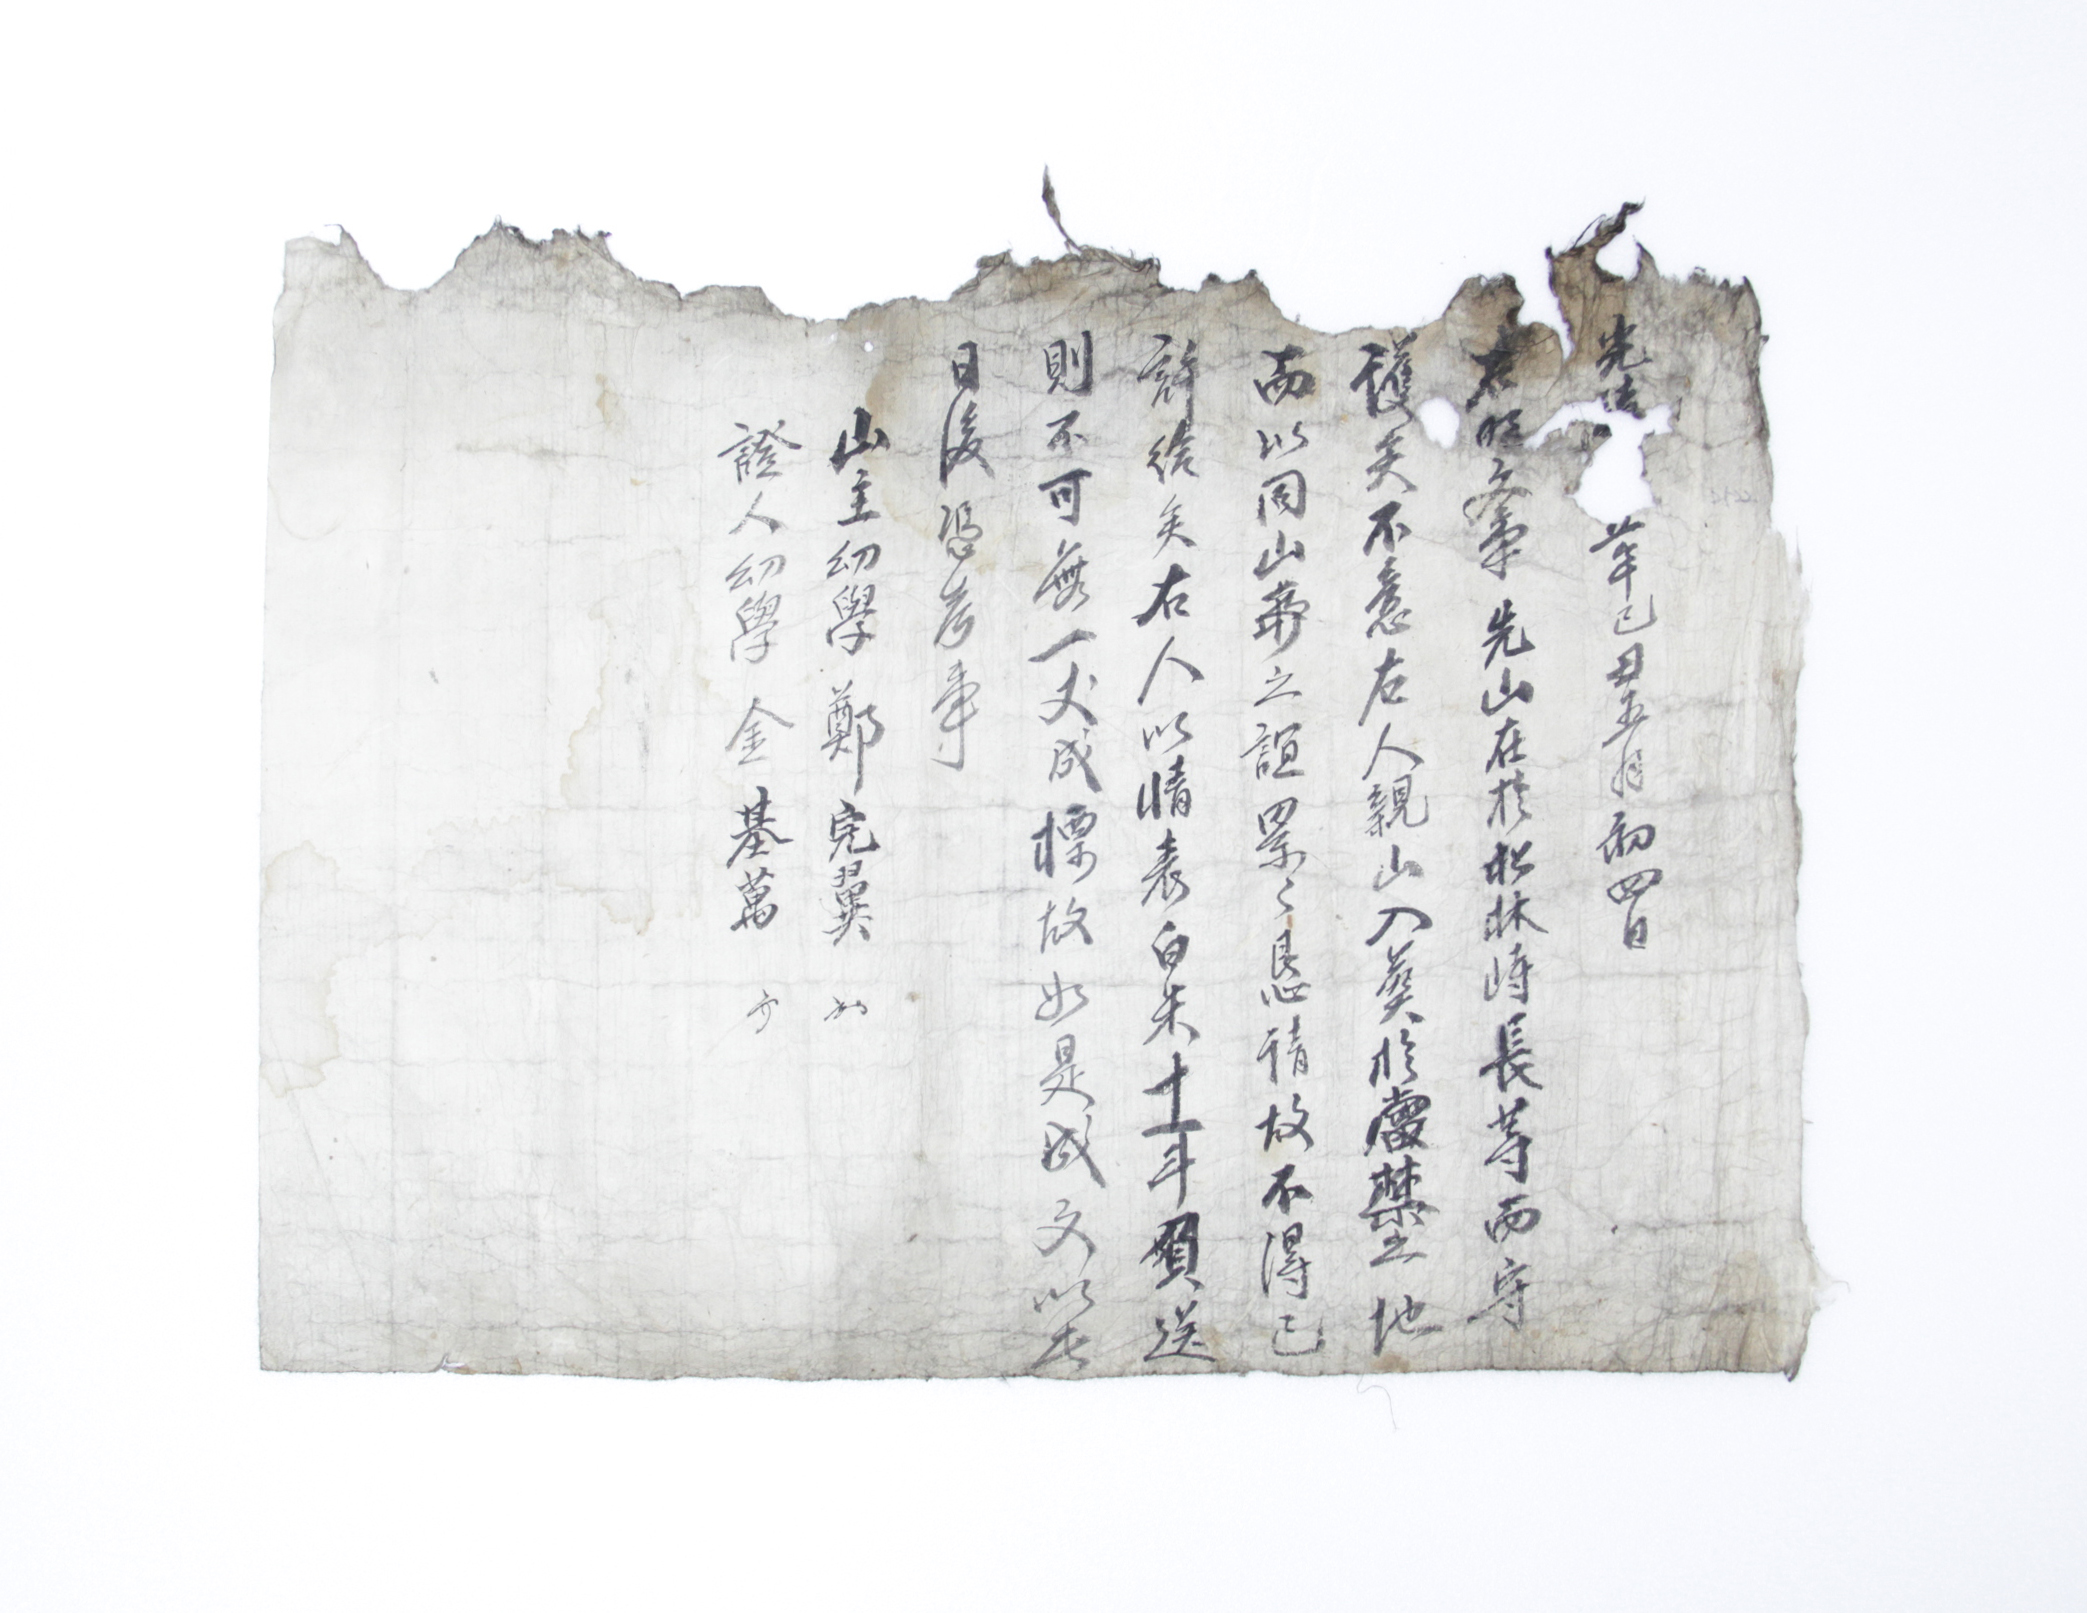 光緒 年己丑五月初四日
右明文事 先山在於松林峙長等而守
護矣不意右人親山入葬於當禁之地
而以同山葬之誼累々恳請故不得已
許給矣右人以情表白米十一斗買送
則不可無一丈成標故如是成文以去
日後憑考事
山主幼學 鄭完翼
證人幼學 金基萬